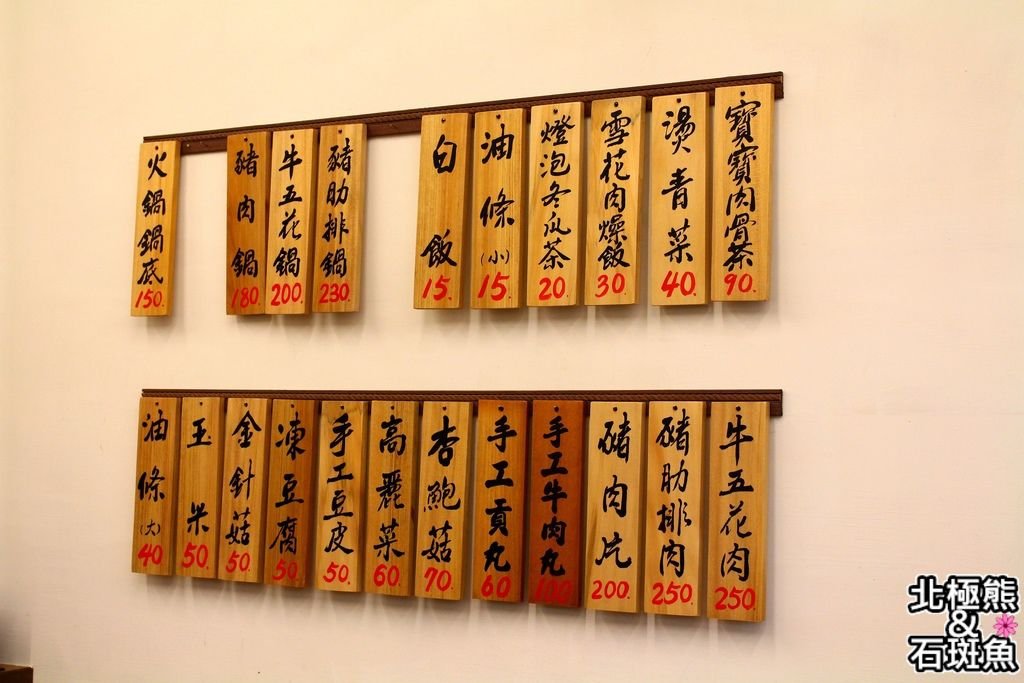 寶寶肉骨茶 90.
燙青菜 40.
雪花肉燥飯 30.
燈泡冬瓜茶 20.
油條(小) 15.
白飯 15.
豬肋排鍋 230.
牛五花鍋 200.
豬肉鍋 180.
火鍋鍋底 150.
牛五花肉 250.
豬肋排肉 250.
豬肉片 200.
手工牛肉丸 100.
手工貢丸 60.
杏鮑菇 70.
高麗菜 60.
手工豆皮 50.
凍豆腐 50.
金針菇 50.
玉米 50.
油條(大) 40.
北極熊
&
石斑魚